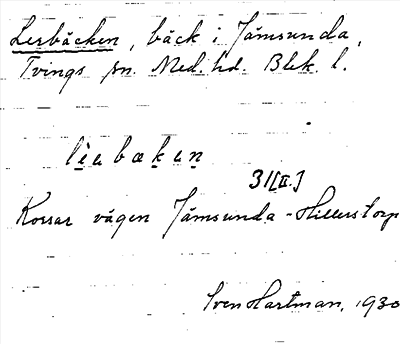 Lerbäcken, bäck i Jämsunda,
Tvings sn. Med. hd. Blek. l.
31[II.]
Korsar vägen Jämsunda - Hillerstorp
Sven Hartman, 1930